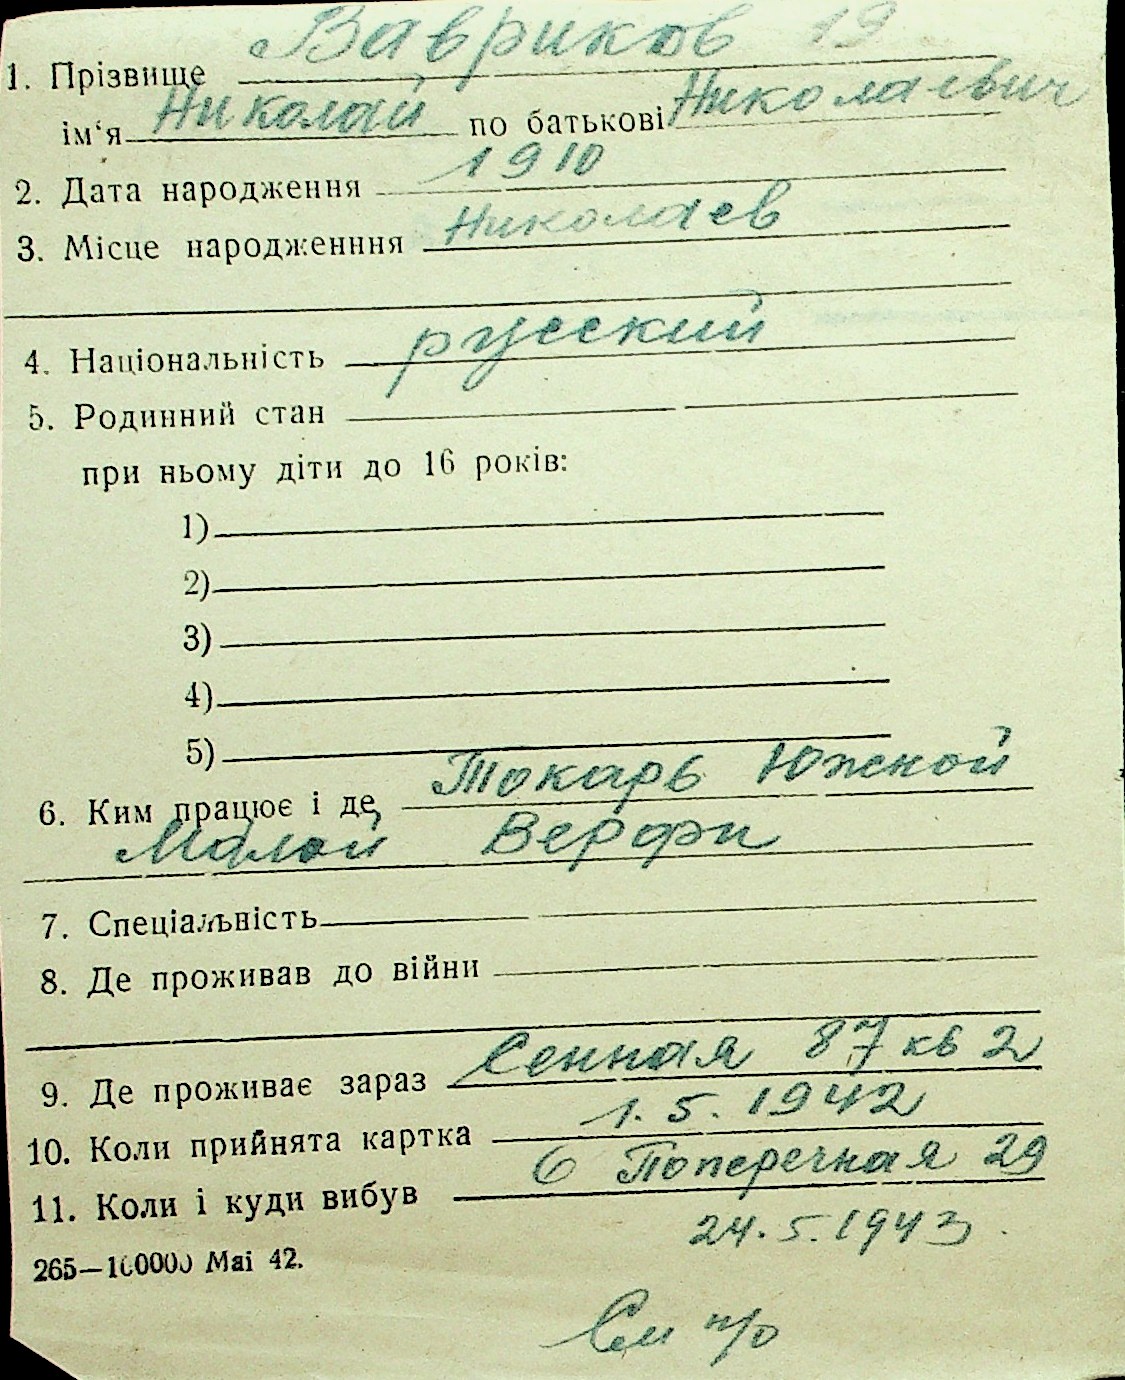 Вавриков 19
1. Прізвище
Николай Николаевич
ім'я по батькові
1910
2. Дата народження
Николаев
3. Місце народженння
русский
4. Національність
5. Родинний стан
при ньому діти до 16 років:
1)
2)
3)
4)
5)
Токарь Южной
6. Ким працює і де,
Малой Верфи
7. Спеціальність
8. Де проживав до війни
9. Де проживає зараз Сенная 87 кв 2
10. Коли прийнята картка 1.5.1942
11. Коли і куди вибув 6 Поперечная 29
24.5.1943
265—100000 Mai 42.
См н/о